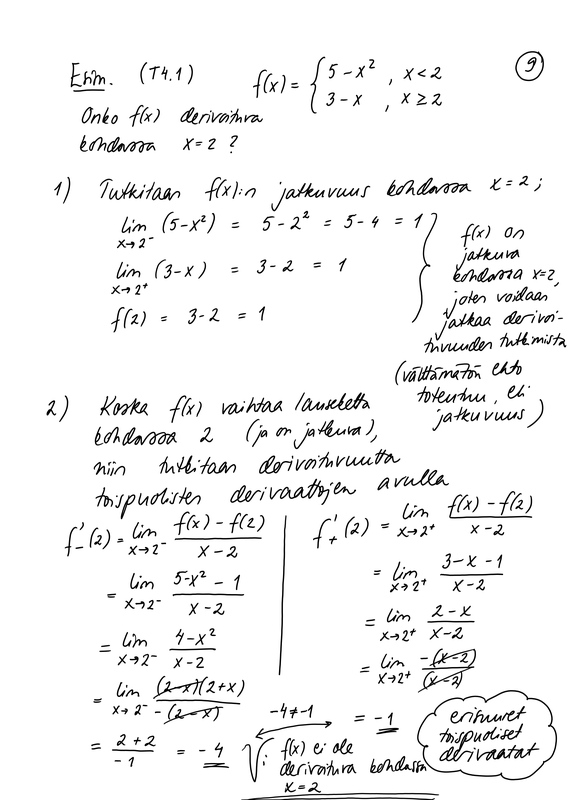 9
Esim. (T4.1) f(x) = { 5 - x² , x < 2
3 - x , x ≥ 2
Onko f(x) derivoituva
kohdassa x = 2 ?
1) Tutkitaan f(x):n jatkuvuus kohdassa x = 2 ;
lim x→2⁻ (5-x²) = 5 - 2² = 5 - 4 = 1
lim x→2⁺ (3-x) = 3 - 2 = 1
f(2) = 3 - 2 = 1
f(x) on
jatkuva
kohdassa x=2,
joten voidaan
jatkaa derivoi-
tuvuuden tutkimista
(välttämätön ehto
toteutuu, eli
jatkuvuus)
2) Koska f(x) vaihtaa lauseketta
kohdassa 2 (ja on jatkuva),
niin tutkitaan derivoituvuutta
toispuolisten derivaattojen avulla
f'₋(2) = lim x→2⁻ (f(x) - f(2))/(x - 2)
= lim x→2⁻ (5-x² - 1)/(x - 2)
= lim x→2⁻ (4-x²)/(x-2)
= lim x→2⁻ (2-x)(2+x)/-(2-x)
= (2+2)/-1 = -4
f'₊(2) = lim x→2⁺ (f(x) - f(2))/(x-2)
= lim x→2⁺ (3-x-1)/(x-2)
= lim x→2⁺ (2-x)/(x-2)
= lim x→2⁺ -(x-2)/(x-2)
= -1
-4 ≠ -1
V: f(x) ei ole
derivoituva kohdassa
x = 2
erisuuret
toispuoliset
derivaatat